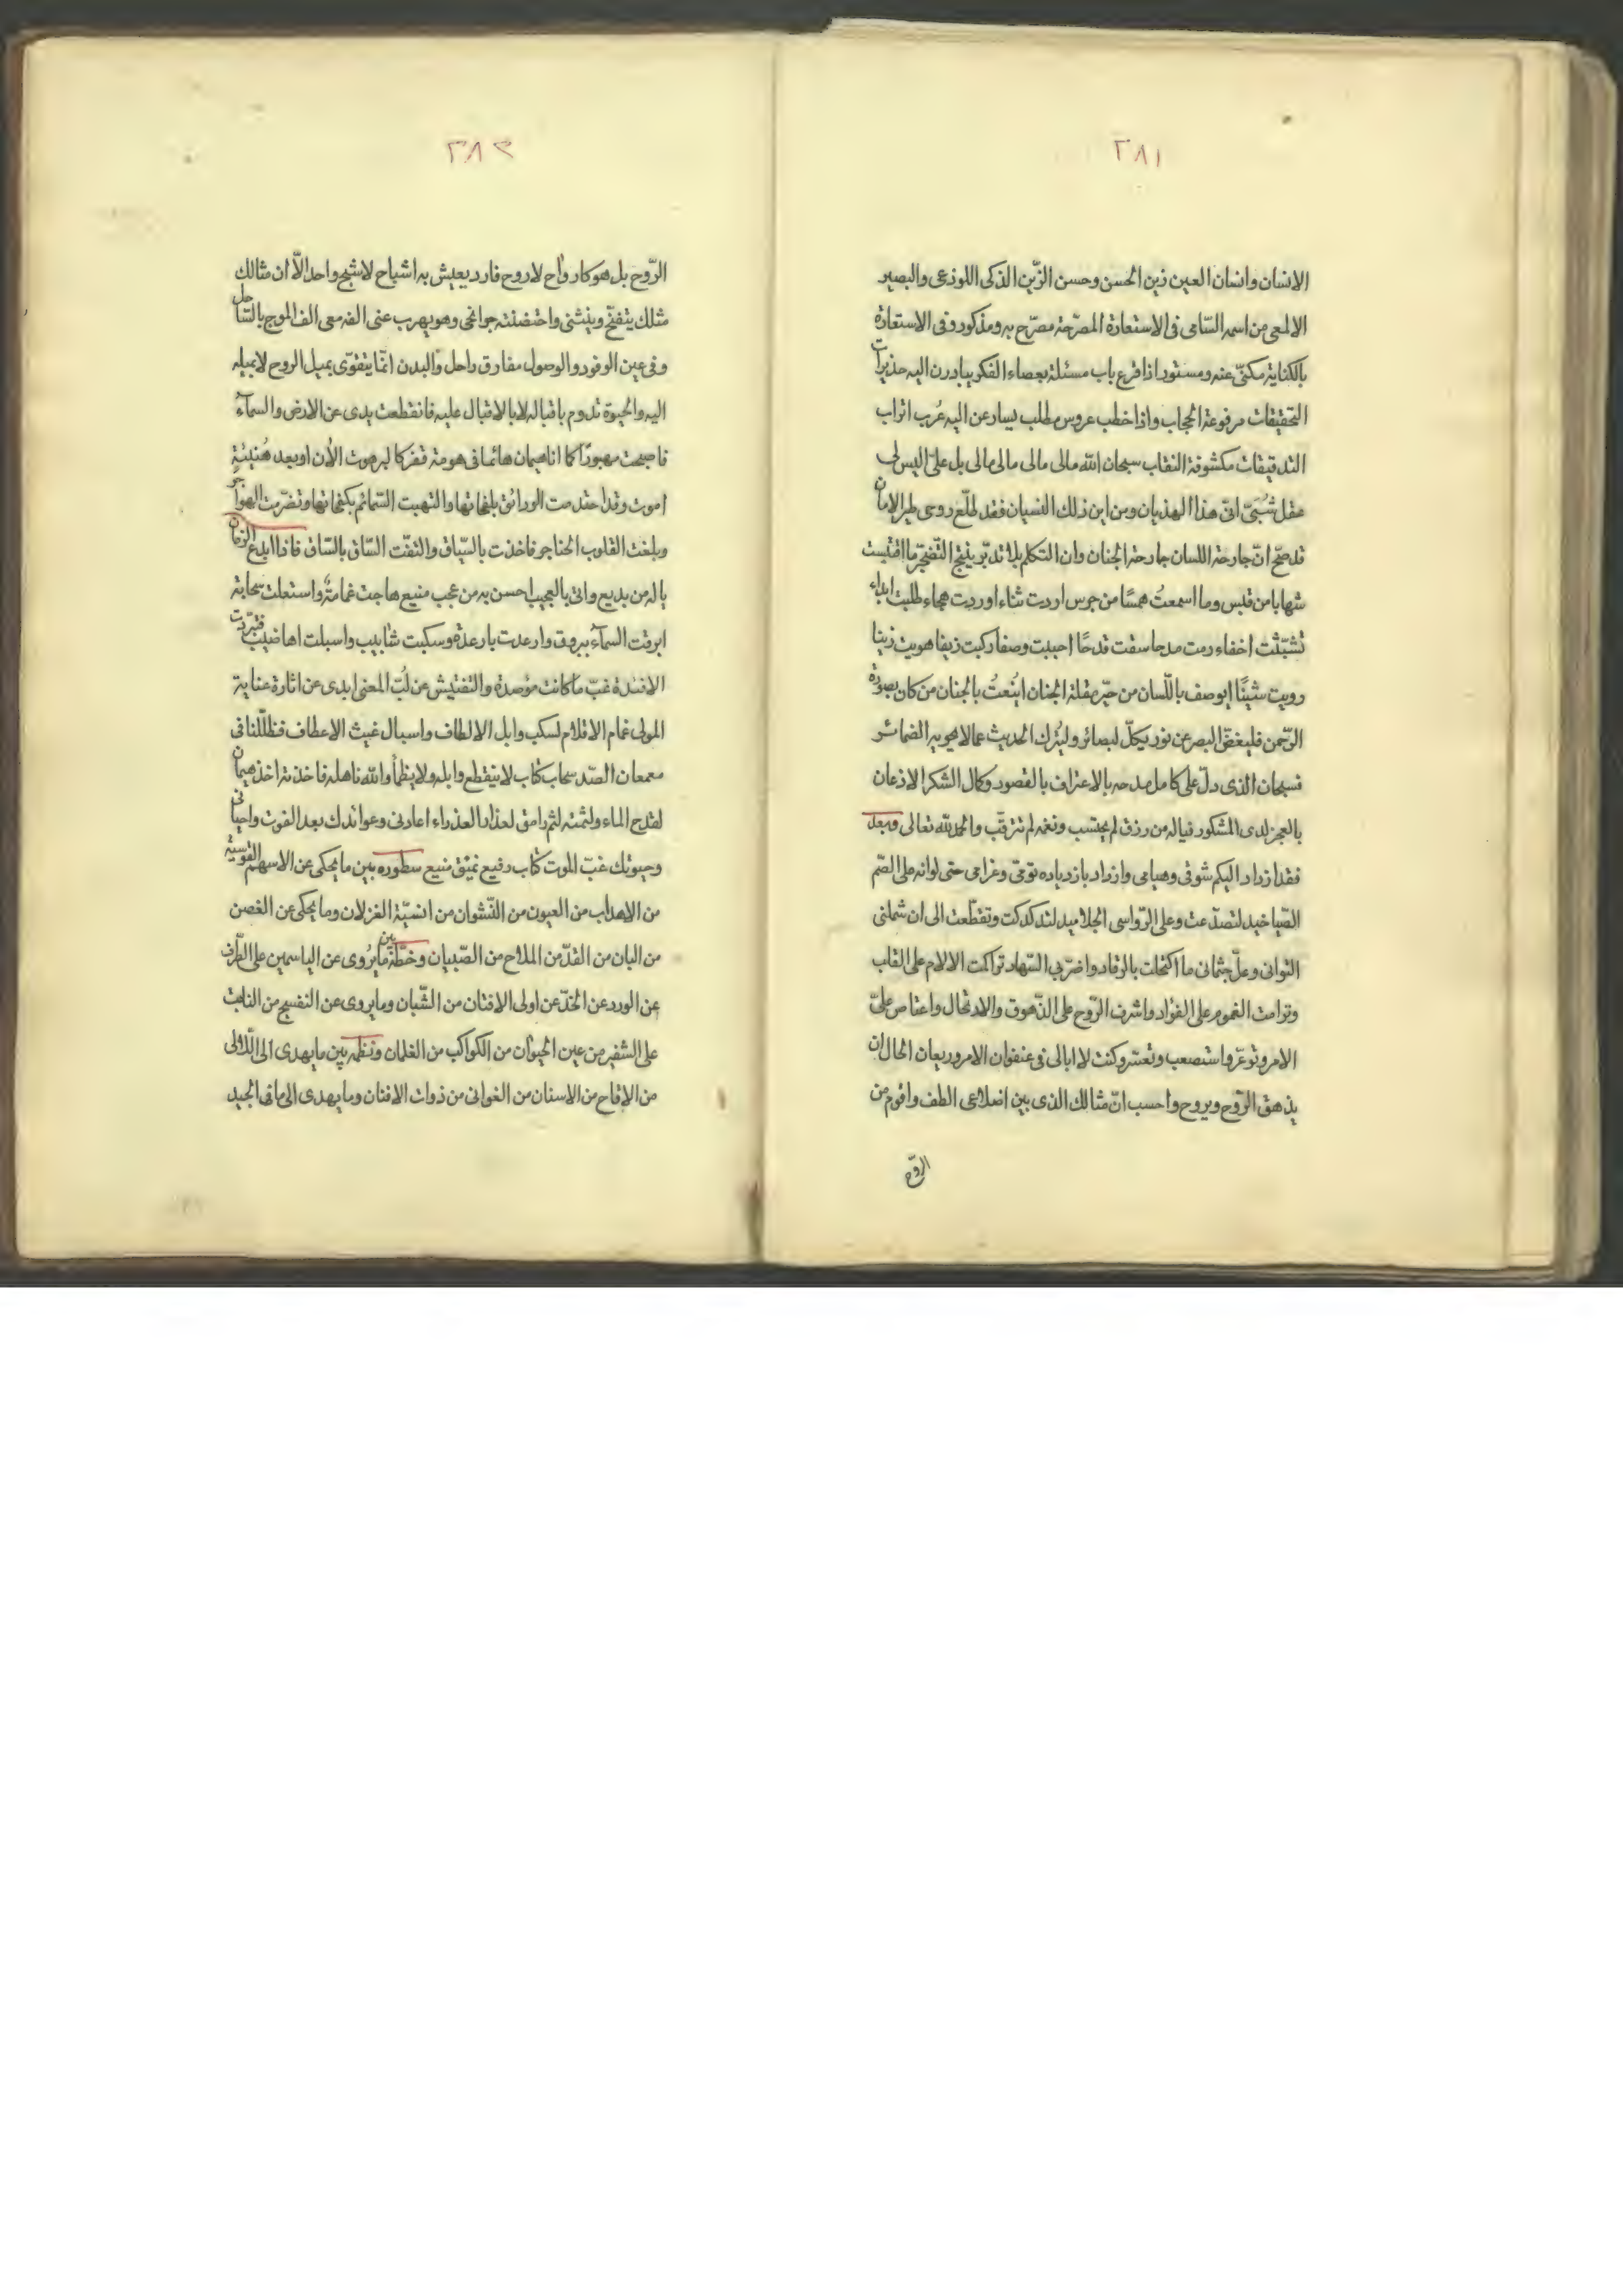 ٢٨١
الانسان وانسان العين زين الحسن وحسن الزّين الذكى اللوذعى والبصير
الالمعى من اسمه السّامى فى الاستعارة المصرّحة مصرّح به ومذكور وفى الاستعارة
بالكناية مكنىّ عنه ومستور اذا قرع باب مسئلة بعصاء الفكر يبادرن اليه
التحقيقات مرفوعة الحجاب واذا خطب عروس مطلب يسارعن اليه عُرب اتراب
التدقيقات مكشوفة النقاب سبحان الله مالى مالى مالى مالى بل علىّ اليس لى
عقل انّى هذا الهذيان ومن اين ذلك النسيان فقد
قد صحّ انّ جارحة اللسان جارحة الجنان وان التكلم بلا تدبّر ينتج التّضجّر ما اقتبست
شهابا من قبس وما اسمعتُ همسًا من جرس اردت ثناء اوردت هجاء طلبت ابداء
تشبّثت اخفاء رمت مدحا سقت قدحًا احببت وصفا ركبت زيفا هويت زينا
رويت شينًا ايوصف باللّسان من مقلة الجنان بالجنان من كان بصورة
الرّحمن فليغضّ البصر عن نور يكلّ لبصائر وليترك الحديث عمالا يحويه الضمائر
فسبحان الذى دلّ على كامل مدحه بالاعتراف بالقصور وكمال الشكر الاذعان
بالعجز لدى المشكور فياله من رزق لم يحتسب ونعمة لم تترقّب والحمد لله تعالى وبعد
فقد ازداد اليكم شوقى وهيامى وازداد بازدياده توقى وغرامى حتى لو انه على الصّم
الصّياخيد لتصدّعت وعلى الرّواسى الجلاميد لتدكدكت وتقطّعت الى ان شملنى
التوانى وعلّ جثمانى ما اكتحلت بالرقاد واضرّ بى السّهاد تراكمت الالام على القلب
وترامت الغموم على الفؤاد واشرف الرّوح على الزّهوق والارتحال واعتاص علىّ
الامر وتوعّر واستصعب وتعسّر وكنت لا ابالى فى عنفوان الامر وريعان الحال ان
يذهق الرّوح ويروح واحسب انّ مثالك الذى بين اضلاعى الطف واقوم من
الرّوح
٢٨٢
الرّوح بل هو كارواح لا روح فارد يعيش به اشباح لا شبح واحد الاّ ان مثالك
مثلك يتفنّج وينثنى واحتضنته جوانحى وهو يهرب عنى الفه معى الف الموج بالسّاحل
وفى عين الوفور والوصول مفارق راحل والبدن انمّا يتقوّى بميل الروح لا بميله
اليه والحيوة تدوم باقباله لا بالاقبال عليه فانقطعت يدى عن الارض والسماء
فاصبحت مهبورًا كما انا هيمان هائما فى هومة قفر كالبرهوت الأن اوبعد هُنيئة
اموت وقد احتدمت الودائق بلفحاتها والتهبت السّمائم بكفحاتها وتضرّمت الهواجر
وبلغت القلوب الحناجر فاخذت بالسّياق والتفّت السّاق بالسّاق فاذا ابدع الزمان
ياله من بديع واتى بالعجيب احسن به من عجب منيع هاجت غمامةٌ واستعلت سحابة
ابرقت السماء ببروق وارعدت بارعدة وسكبت شابيب واسبلت اهاضيب فتبرّدت
الافئدة غبّ ما كانت مؤصدة والتفتيش عن لُبّ المعنى ابدى عن اثارة عناية
المولى غمام الاقلام لسكب وابل الالطاف واسبال غيث الاعطاف فظلّلنا فى
معمعان الصّد سحاب كتاب لا ينقطع وابله ولا يظمأ والله ناهله فاخذته اخذ هيمان
لقدح الماء ولثمته لثم رامق لعذار العذراء اعادنى وعوائدك بعد الفوت واحيانى
وحيوتك غبّ الموت كتاب رفيع نميق منيع سطوره بين ما يحكى عن الاسهم القوسيّة
من الاهداب من العيون من النّشوان من انسيّة الغزلان وما يحكى عن الغصن
من البان من القدّ من الملاح من الصّبيان وخطّه بين ما يُروى عن الياسمين على الطّرف
عن الورد عن الخدّ عن اولى الافتان من الشّبان وما يروى عن النفسج من النابت
على الشفير من عين الحيوان من الكواكب من الغلمان ونظمه بين ما يهدى الى الّلالى
من الاقاح من الاسنان من الغوانى من ذوات الافتان وما يهدى الى ما فى الجيد